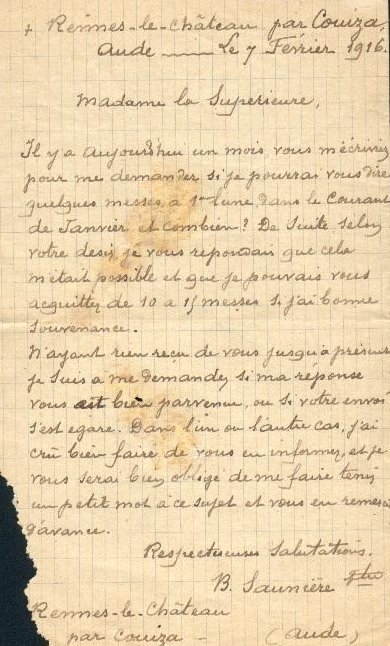 + Rennes-le-Château par Couiza,
Aude —— Le 7 Février 1916.
Madame la Supérieure,
Il y a aujourd'hui un mois, vous m'écriviez
pour me demander si je pourrai vous dire
quelques messes à 1f l'une, dans le Courant
de Janvier et combien? De Suite selon
votre désir, je vous repondais que cela
m'était possible et que je pouvais vous
acquitter de 10 a 15 messes si j'ai bonne
souvenance.
N'ayant rien reçu de vous jusqu'à présent
je suis a me demander si ma reponse
vous est bien parvenue, ou si votre envoi
s'est egaré. Dans l'un ou l'autre cas, j'ai
crû bien faire de vous en informer, et je
vous serai bien obligé de me faire tenir
un petit mot a ce sujet et vous en remercie
d'avance.
Respectueuses Salutations.
B. Saunière ptre
Rennes-le-Château
par Couiza - (Aude)